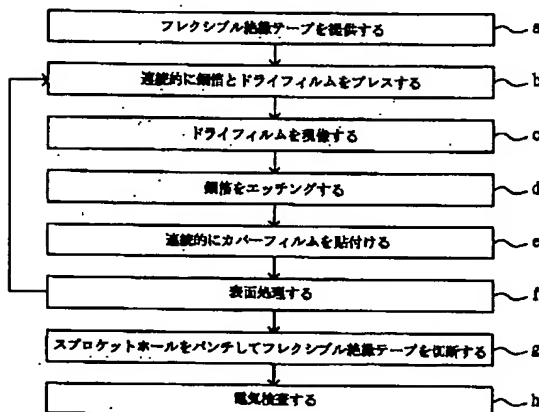 フレクシブル絶縁テープを提供する a
連続的に銅箔とドライフィルムをプレスする b
ドライフィルムを現像する c
銅箔をエッチングする d
連続的にカバーフィルムを貼付ける e
表面処理する f
スプロケットホールをパンチしてフレクシブル絶縁テープを切断する g
電気検査する h